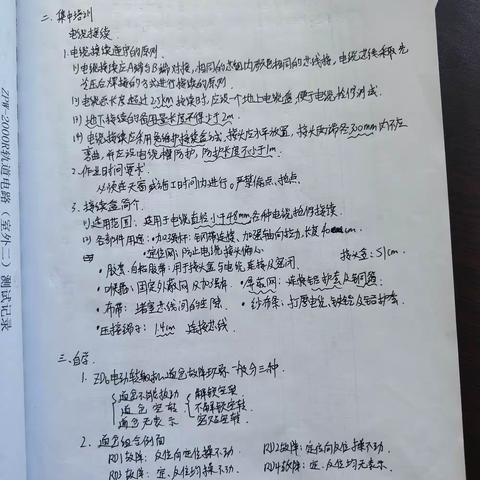 二、集中培训
电缆接续
1.电缆接续遵守的原则
(1)电缆接续应A端与B端对接,相同的芯组内颜色相同的芯线接,电缆连续采取先
芯压后焊接的方式进行接续的原则
(2)电缆总长度超过2.5km接续时,应设一个地上电缆盒,便于电缆检修测试。
(3)地下接续的备用量长度不得少于2m。
(4)电缆接续应采用免维护接续盒方式,接头应水平放置,接头两端各300mm内不应
弯曲,并应设电缆槽防护,防护长度不小于1m.
2.作业时间要求
必须在天窗或施工时间内进行。严禁偷点、抢点。
3.接续盒简介
(1)适用范围:适用于电缆直径小于48mm各种电缆抢修接续
(2)各部件用途:•加强杯:钢带连接,加强轴向拉力,长度
•定位网:防止电缆接头偏心 接头盒:51cm
•胶塞、自粘胶带:用于接头盒与电缆连接及密闭
•喉箍:固定外蔽网及加强杯 •屏蔽网:连接铝护套及钢带
•布带:堵塞芯线间的空隙 •纱布条:打磨电缆、铁铠及铝护套.
•压接端子:1.4cm 连接芯线
三、自学
1.ZD6电动转辙机道岔故障现象一般分三种
道岔不能扳动 解锁空转
道岔空转 不解锁空转
道岔无表示 密贴空转
2.道岔组合侧面
RD1故障:反位向定位操不动. RD2故障:定位向反位操不动.
RD3故障:定、反位均操不动. RD4故障:定、反位均无表示.
ZPW-2000R轨道电路(室外二)测试记录